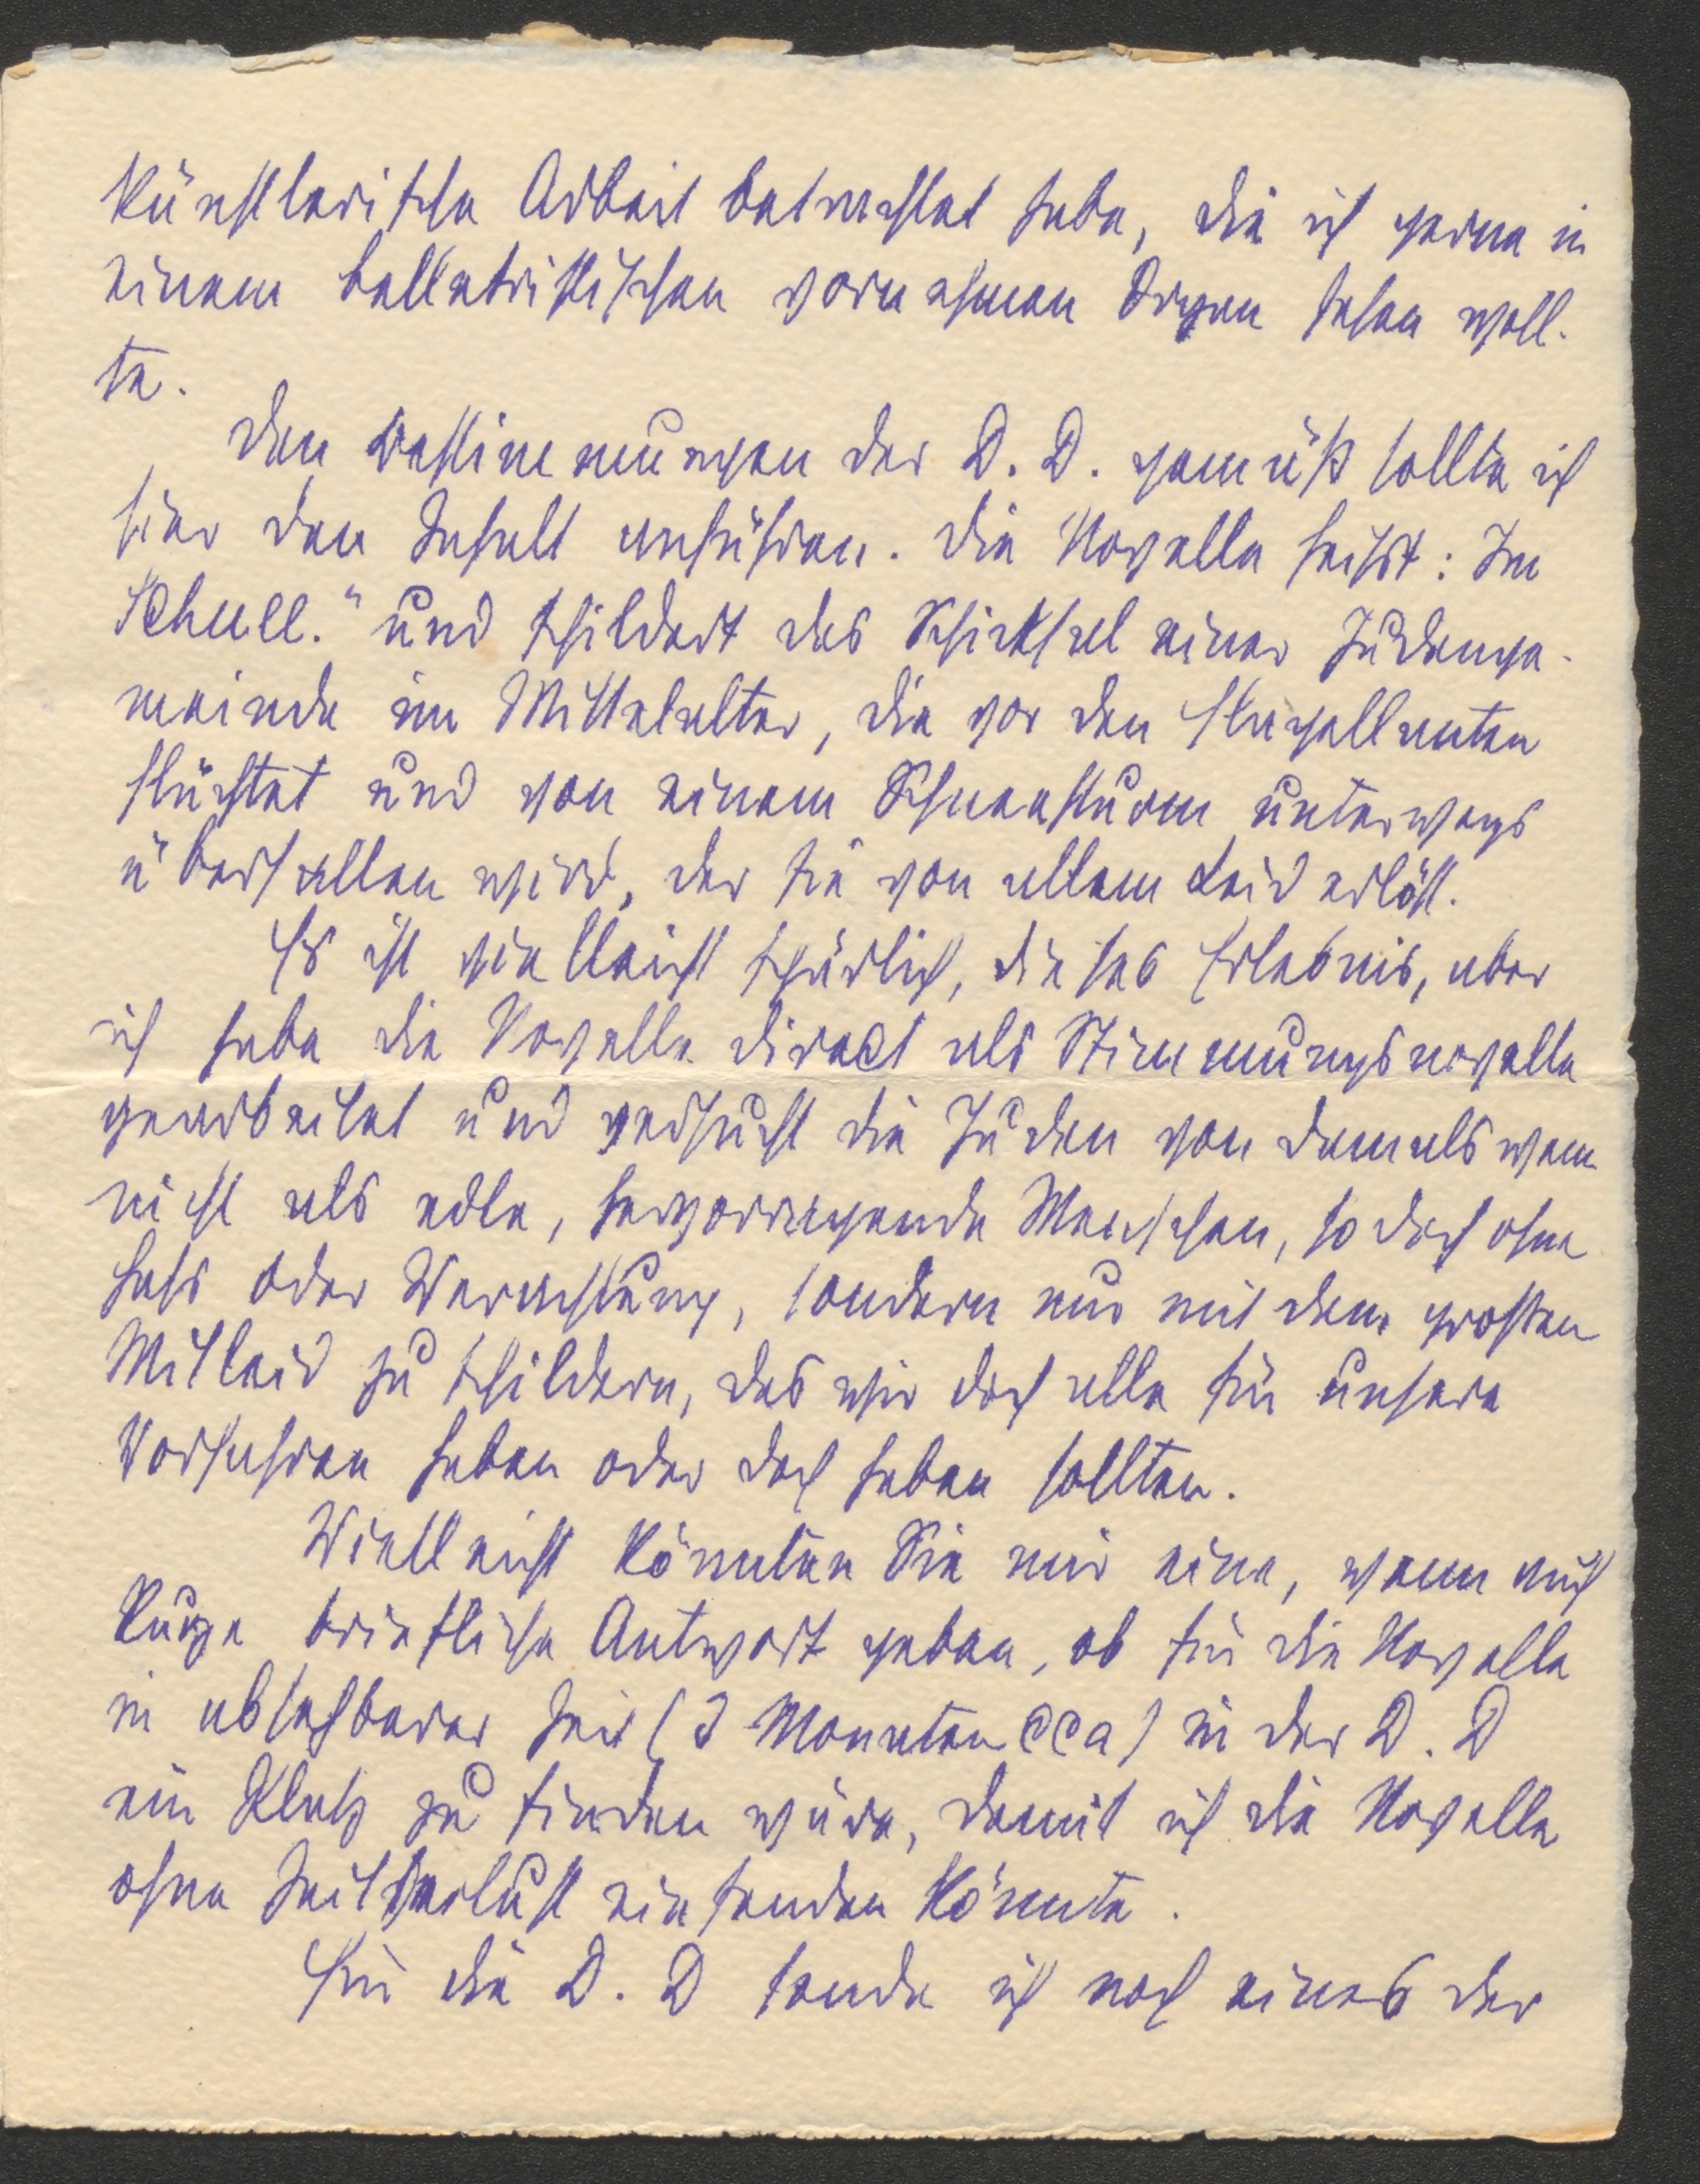 künstlerische Arbeit betrachtet habe, die ich gerne in
einem belletristischen vornehmen Organ sehen woll-
te.
Den Bestimmungen der D. D. gemäß sollte ich
hier den Inhalt anführen. Die Novelle heißt: Im
Schnee." und schildert das Schicksal einer Judenge-
meinde im Mittelalter, die vor den Flagellanten
flüchtet und von einem Schneesturm unterwegs
überfallen wird, der sie von allem Leid erlöst.
Es ist vielleicht spärlich, dieses Erlebnis, aber
ich habe die Novelle direct als Stimmungsnovelle
gearbeitet und versucht die Juden von damals wenn
nicht als edle, hervorragende Menschen, so doch ohne
Hass oder Verachtung, sondern nur mit dem großen
Mitleid zu schildern, das wir doch alle für unsere
Vorfahren haben oder doch haben sollten.
Vielleicht könnten Sie mir eine, wenn auch
kurze briefliche Antwort geben, ob für die Novelle
in absehbarer Zeit (3 Monaten cca) in der D. D
ein Platz zu finden wäre, damit ich die Novelle
ohne Zeitverlust einsenden könnte.
Für die D. D sende ich noch eines der